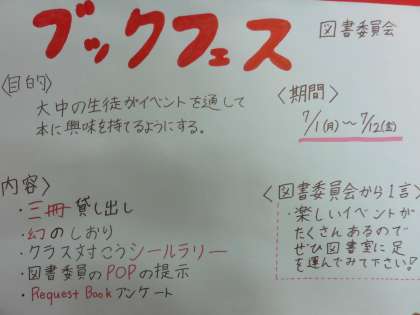 ブックフェス
図書委員会
〈目的〉
大中の生徒がイベントを通して
本に興味を持てるようにする。
〈期間〉
7/1(月)～7/12(金)
内容〉
・三冊貸し出し
・幻のしおり
・クラス対こうシールラリー
・図書委員のPOPの提示
・Request Bookアンケート
〈図書委員会から1言〉
・楽しいイベントが
たくさんあるので
ぜひ図書室に足
を運んでみて下さい!